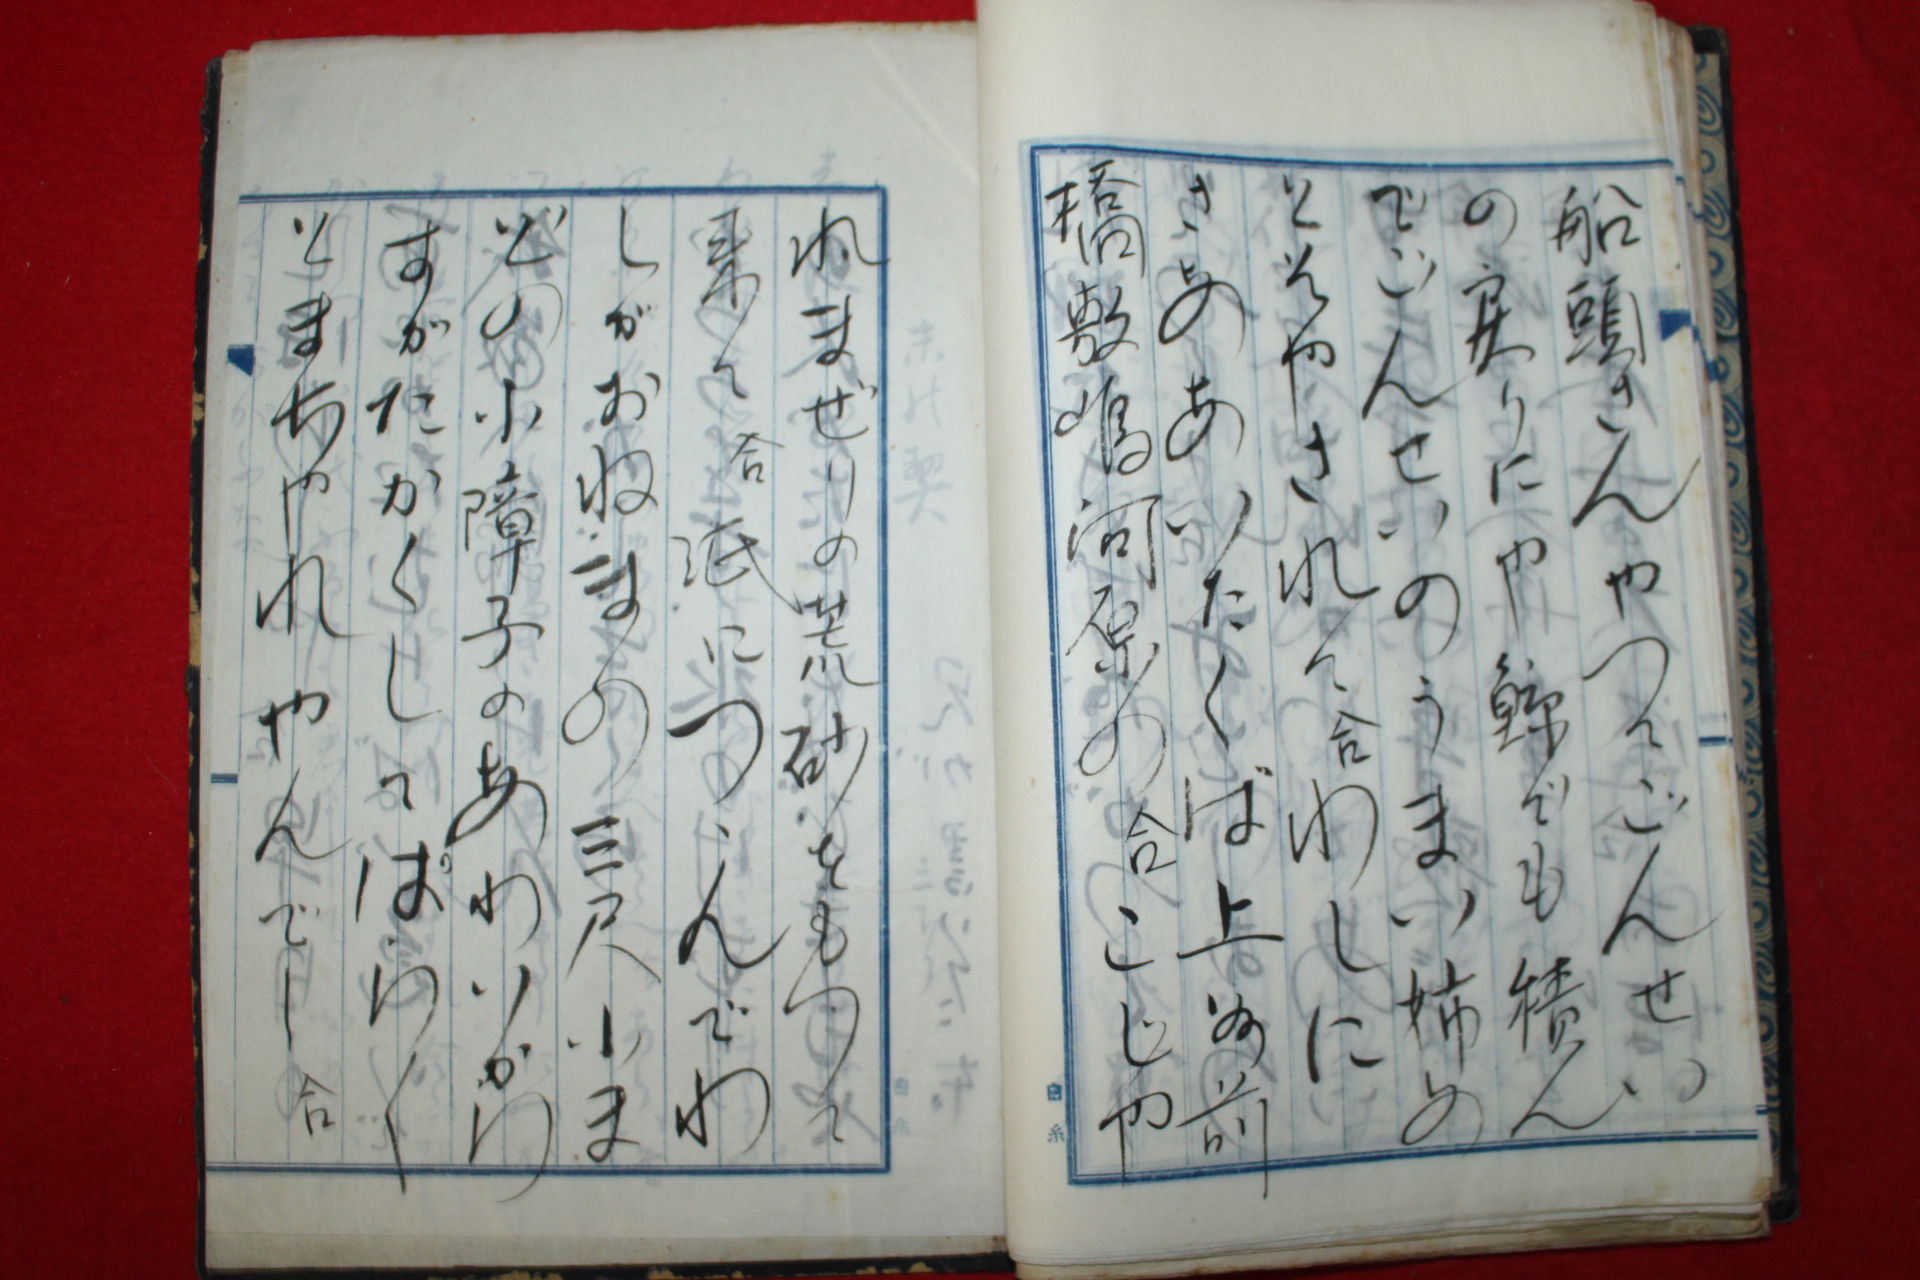 船頭さんやつてごんせい
の戻りにや鯨でも積ん
でごんせいのうまい姉め
とそやされて合わしに
さめあいたくば上め前
橋敷嶋河原の合こじや
れまぜりの荒砂をもつて
来て合泥につゝんでわ
しがおねまの三尺小ま
どの小障子のあわいから
すがたかくしてぱらく
とまちやれやんでし合